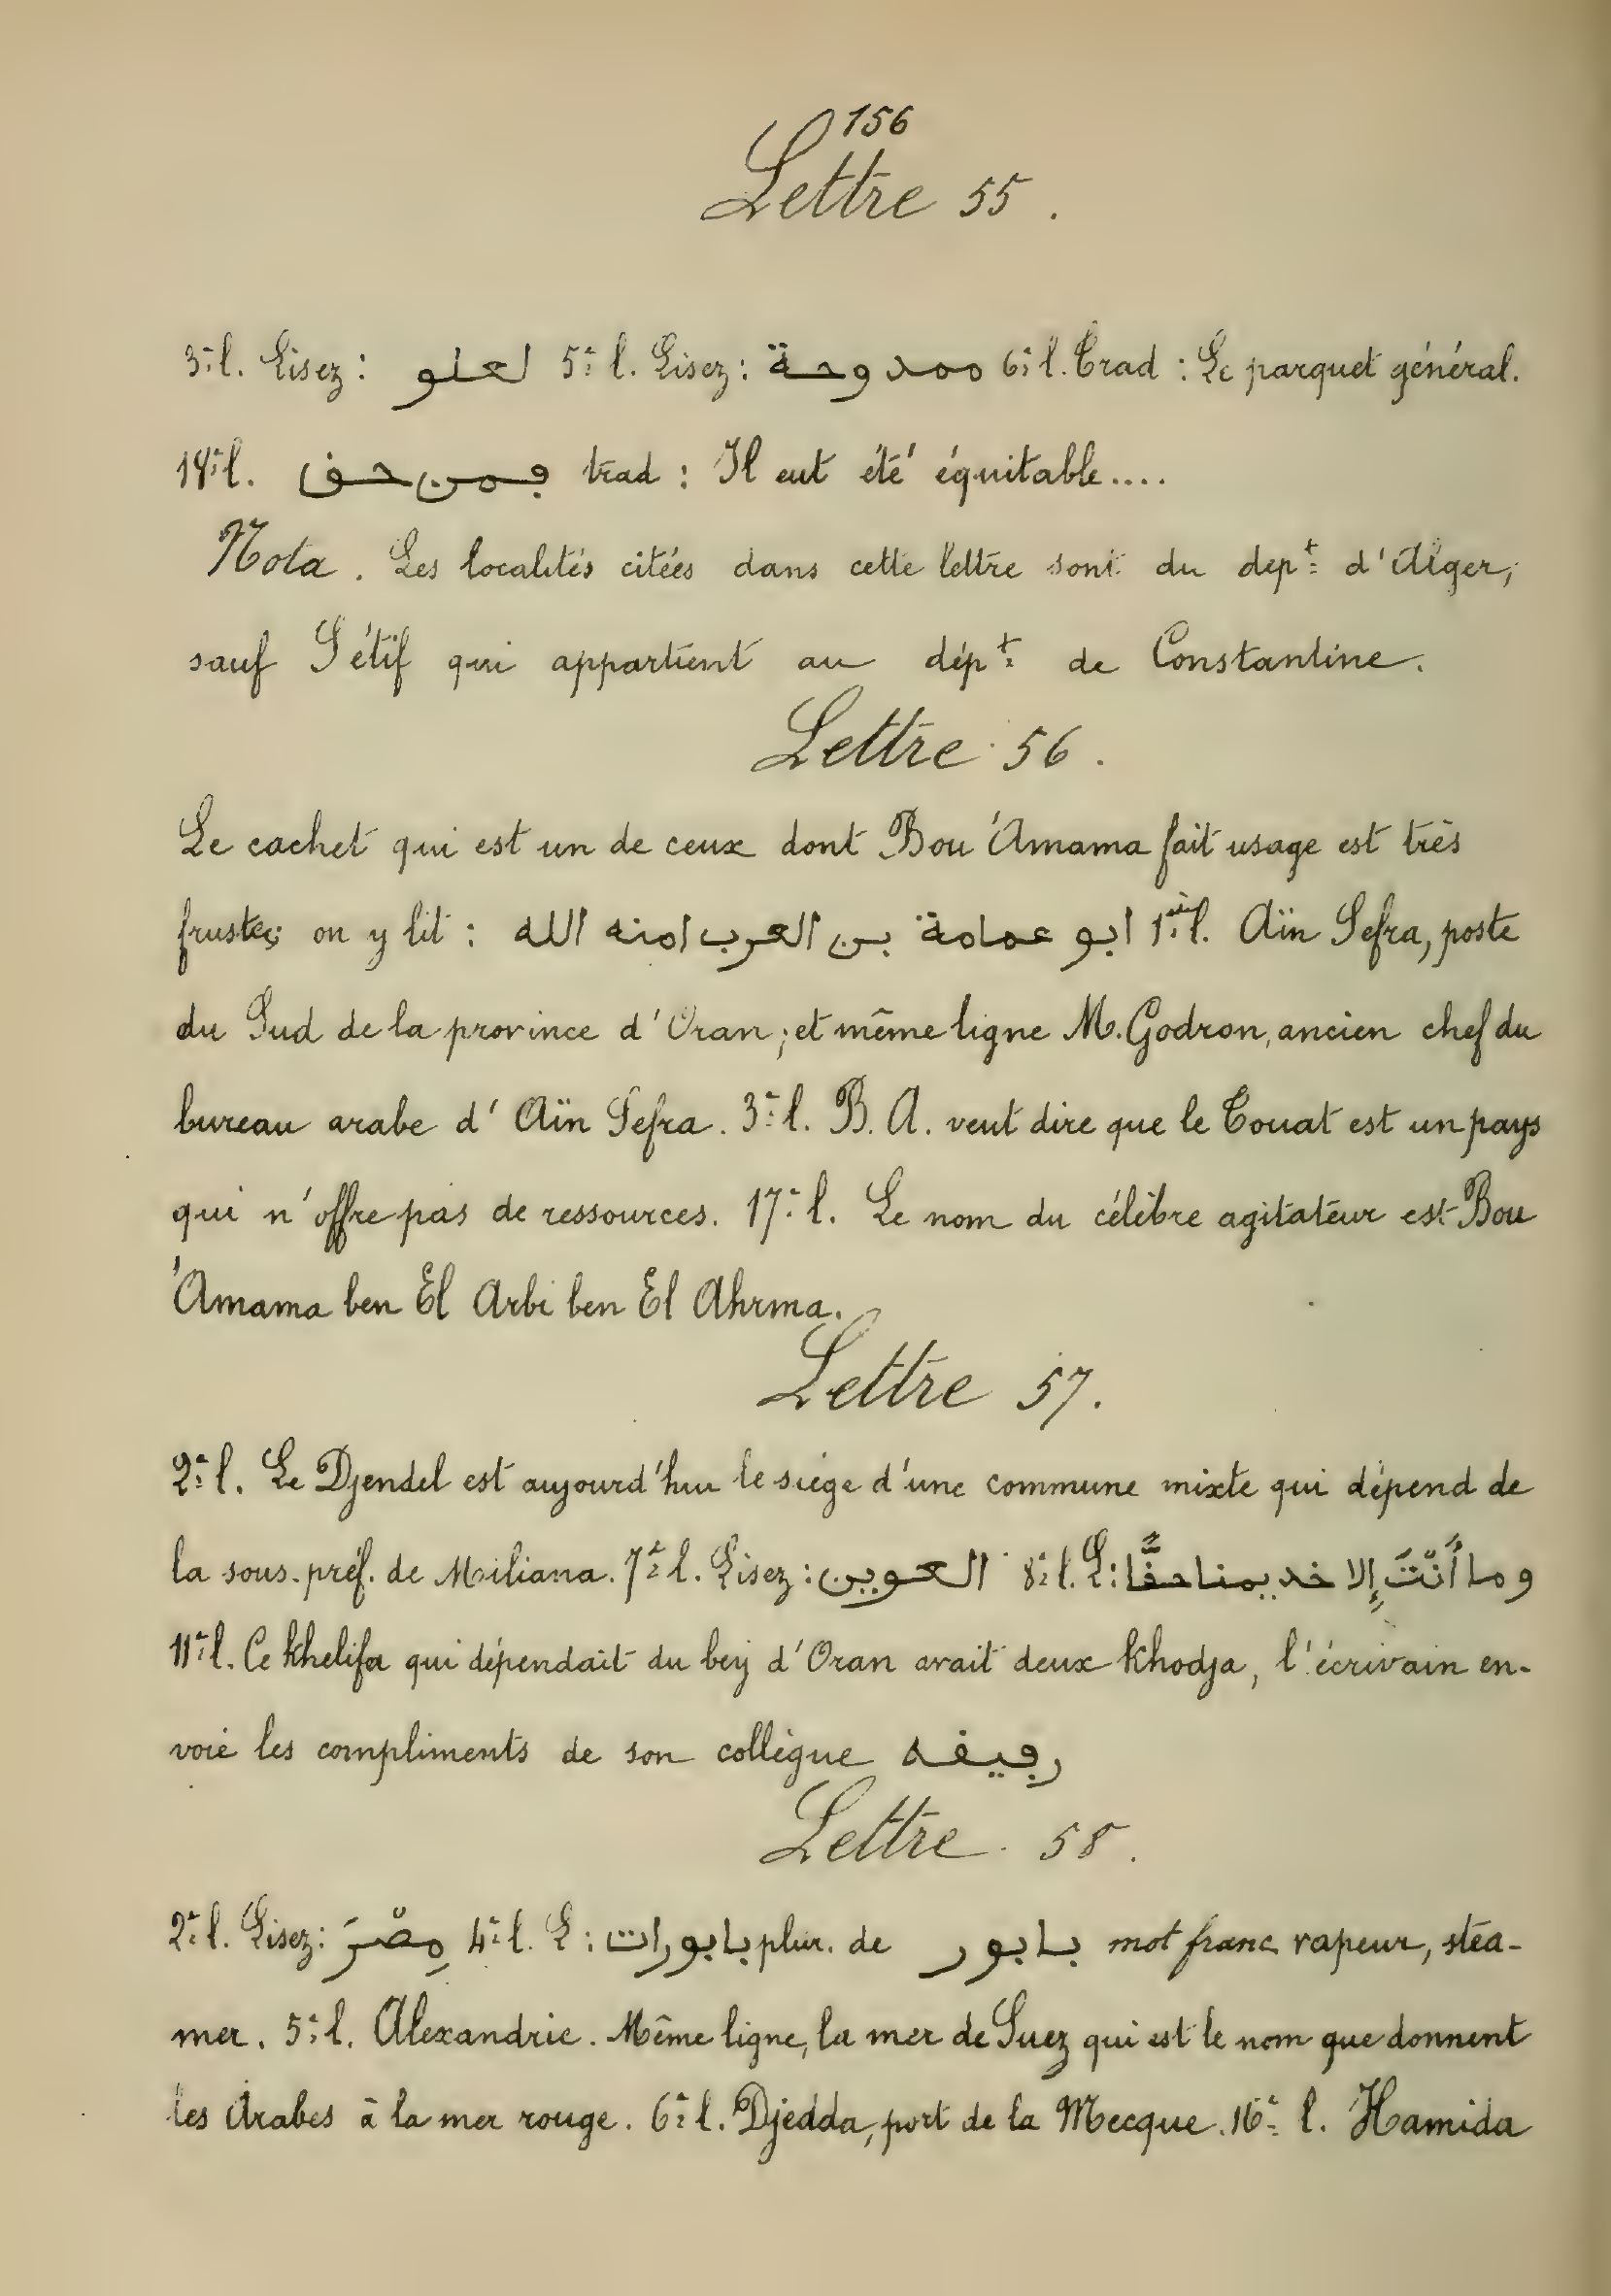 156
Lettre 55.
3e l. Lisez: لعلو 5e l. Lisez: ممدوحة 6e l. Trad: Le parquet général.
18e l. فمن حق trad: Il eut été équitable....
Nota. Les localités citées dans cette lettre sont du dept d'Alger,
sauf Sétif qui appartient au dépt de Constantine.
Lettre 56.
Le cachet qui est un de ceux dont Bou 'Amama fait usage est très
fruste; on y lit: ابو عمامة بن العرب امنه الله 1ère l. Aïn Sefra, poste
du Sud de la province d'Oran; et même ligne M. Godron, ancien chef du
bureau arabe d'Aïn Sefra. 3e l. B. A. veut dire que le Touat est un pays
qui n'offre pas de ressources. 17e l. Le nom du célèbre agitateur est Bou
'Amama ben El Arbi ben El Ahrma.
Lettre 57.
2e l. Le Djendel est aujourd'hui le siège d'une commune mixte qui dépend de
la sous-préf. de Miliana. 7e l. Lisez: العوين 8e l. L: وما أَنْتَ إِلا خديمنا حقًّا
11e l. Ce khelifa qui dépendait du bey d'Oran avait deux khodja, l'écrivain en-
voie les compliments de son collègue رفيقه
Lettre 58.
2e l. Lisez: مِصْرَ 4e l. L: بابورات plur. de بابور mot franc vapeur, stea-
mer. 5e l. Alexandrie. Même ligne, la mer de Suez qui est le nom que donnent
les Arabes à la mer rouge. 6e l. Djedda, port de la Mecque. 16e l. Hamida